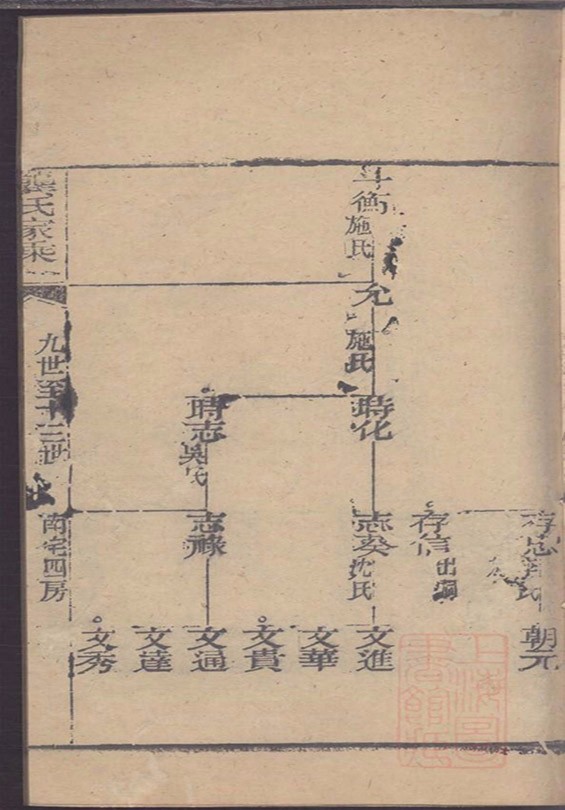 存忠
朝元
存信 出嗣
斗衡 施氏
允
施氏
時化
志葵 沈氏
文進
文華
文貴
時志 吳氏
志祿
文通
文達
文秀
龔氏家乘
九世至十三世
南宅四房